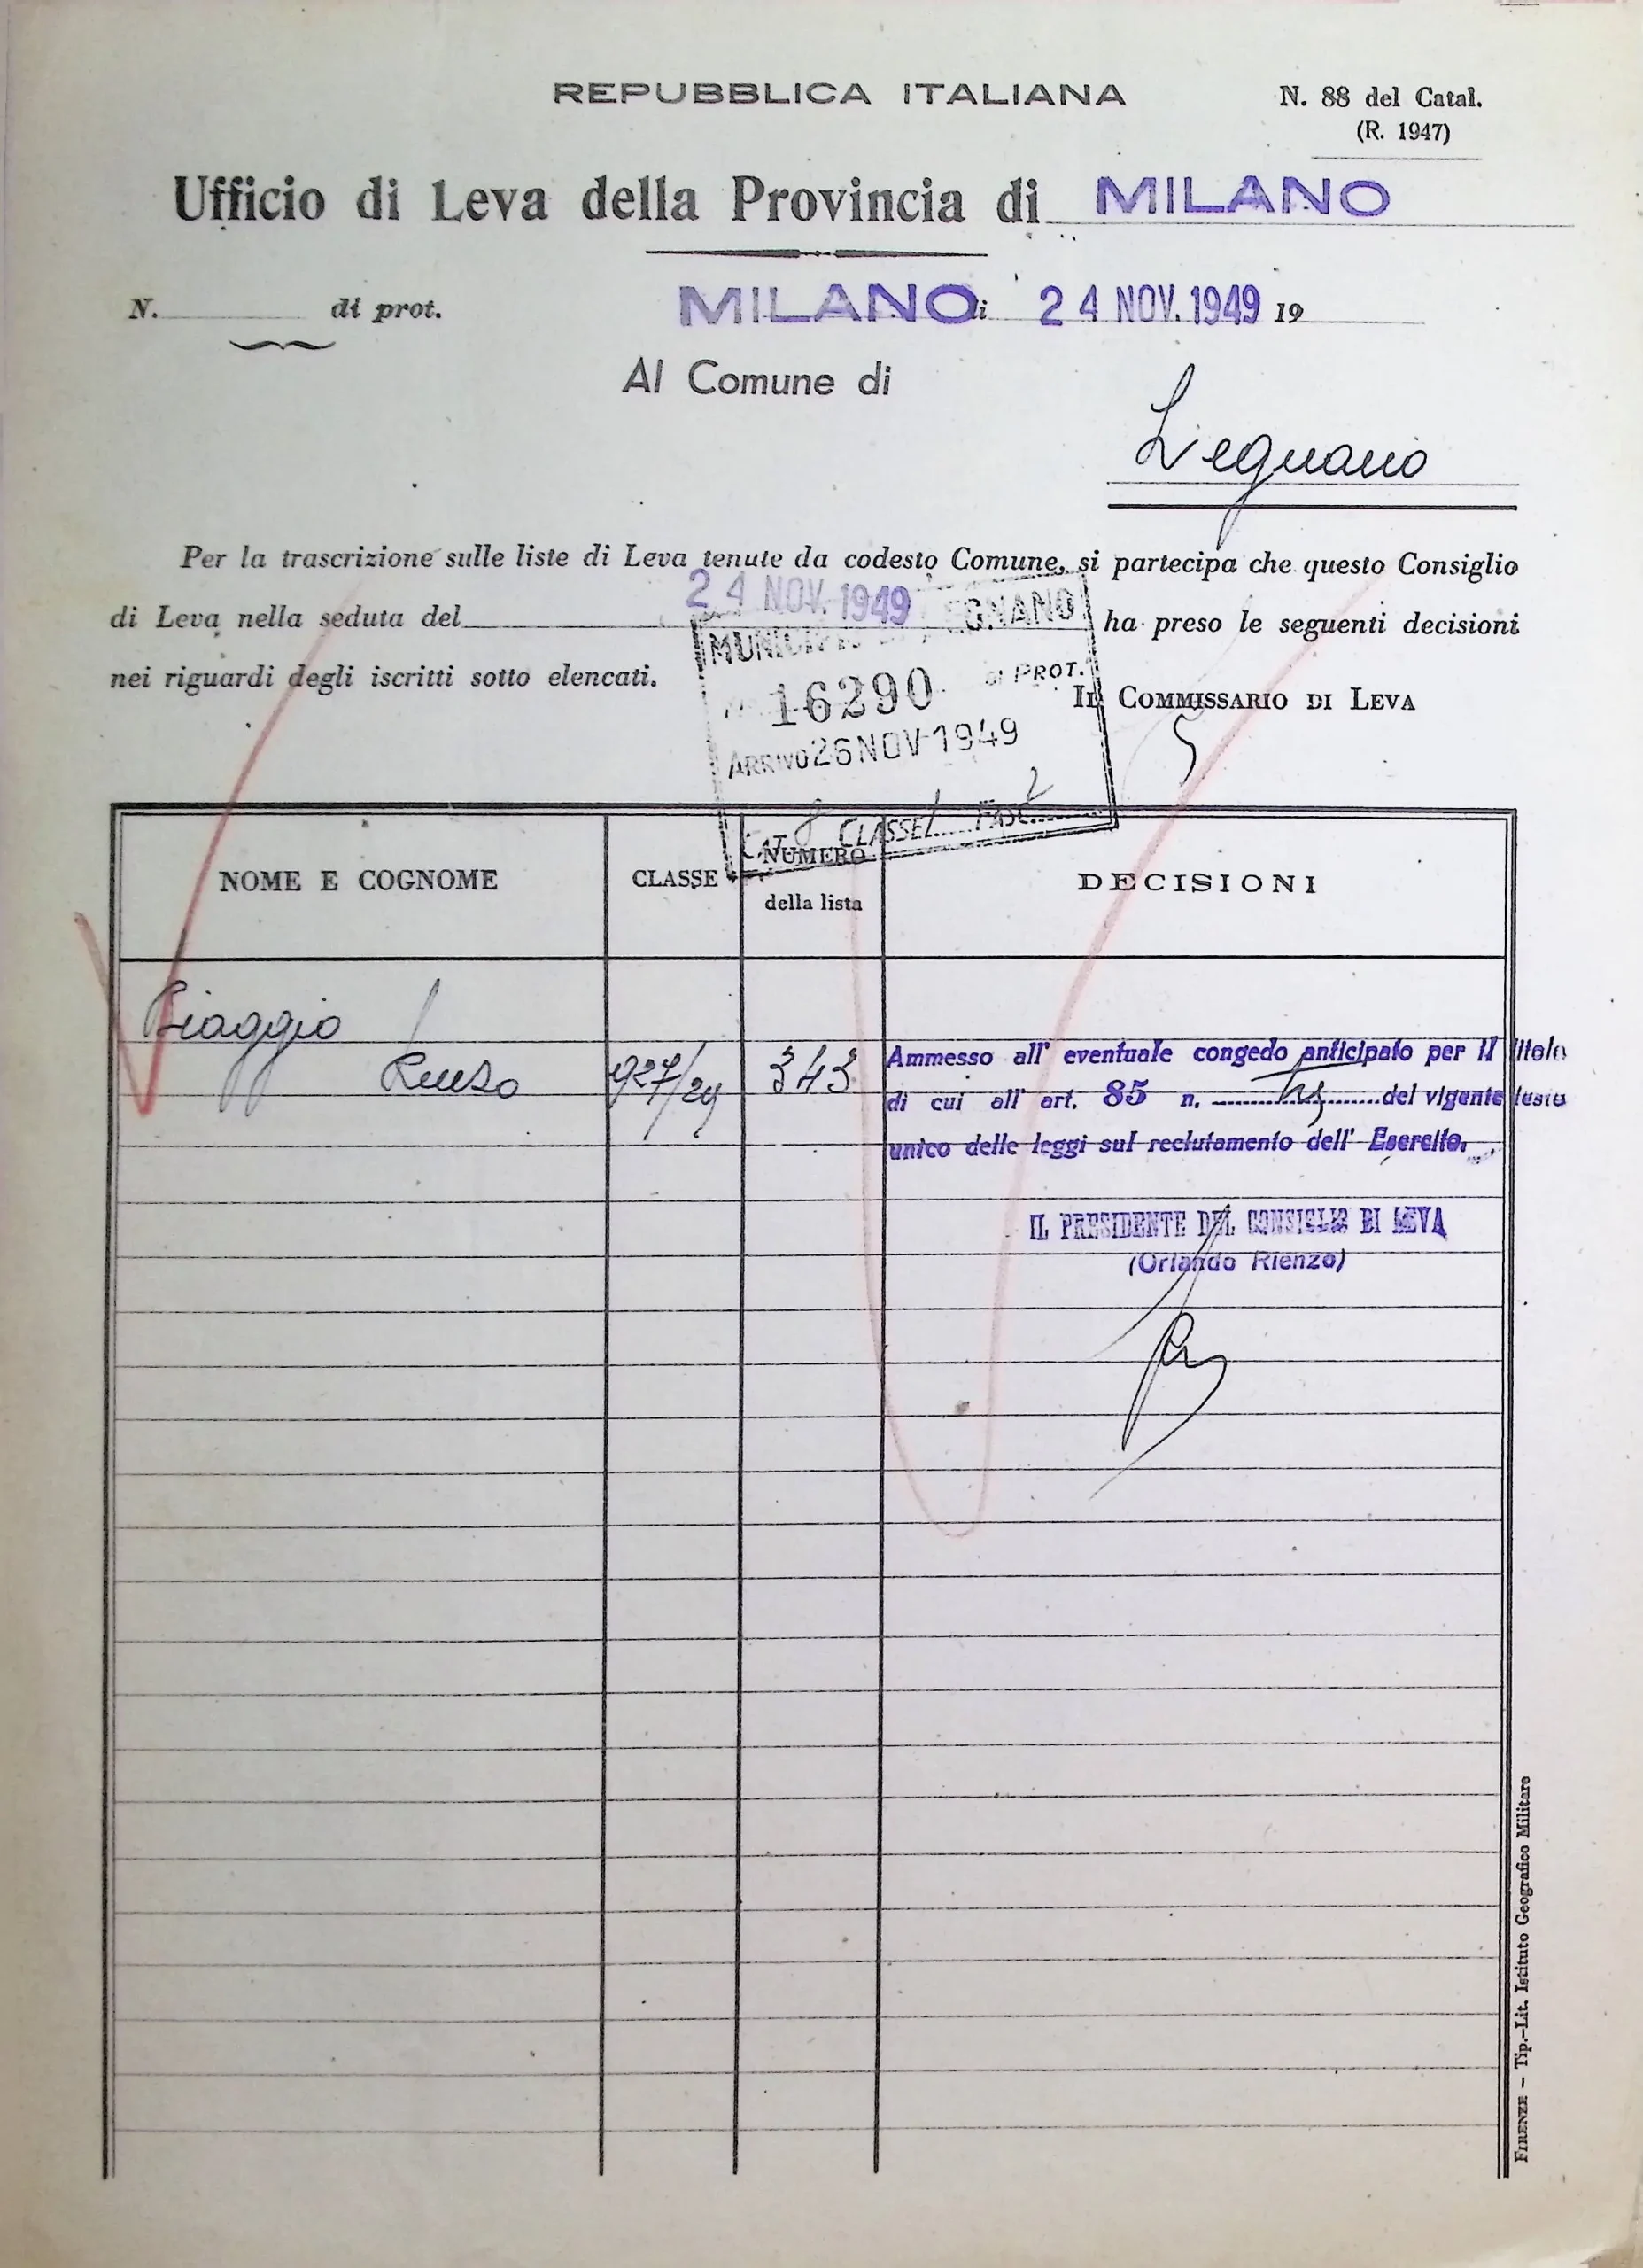 REPUBBLICA ITALIANA
N. 88 del Catal.
(R. 1947)
Ufficio di Leva della Provincia di MILANO
N. di prot.
MILANO li 24 NOV. 1949 19
Al Comune di
Legnano
Per la trascrizione sulle liste di Leva tenute da codesto Comune, si partecipa che questo Consiglio
di Leva nella seduta del 24 NOV. 1949 ha preso le seguenti decisioni
nei riguardi degli iscritti sotto elencati.
MUNICIPIO LEGNANO
16290 DI PROT.
ARRIVO 26 NOV 1949
CAT. 8 CLASSE 1 FASC. 2
IL COMMISSARIO DI LEVA
NOME E COGNOME
CLASSE
NUMERO
della lista
DECISIONI
Biaggio
Renzo
927/29
343
Ammesso all' eventuale congedo anticipato per il titolo
di cui all' art. 85 n. del vigente testo
unico delle leggi sul reclutamento dell' Esercito.
IL PRESIDENTE DEL CONSIGLIO DI LEVA
(Orlando Rienzo)
FIRENZE – Tip.-Lit. Istituto Geografico Militare